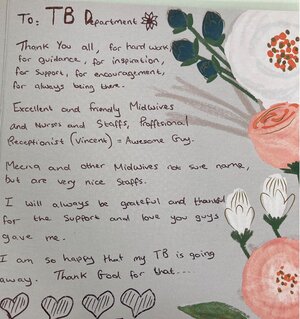 To: TB Department
Thank You all, for hard work
for guidance, for inspiration,
for support, for encouragement,
for always being there.
Excellent and friendly Midwives
and Nurses and Staffs, Profftional
Receptionist (Vincent) = Awesome Guy.
Meena and other Midwives not sure name,
but are very nice Staffs.
I will always be grateful and thankful
for the Support and love you guys
gave me.
I am so happy that my TB is going
away. Thank God for that....